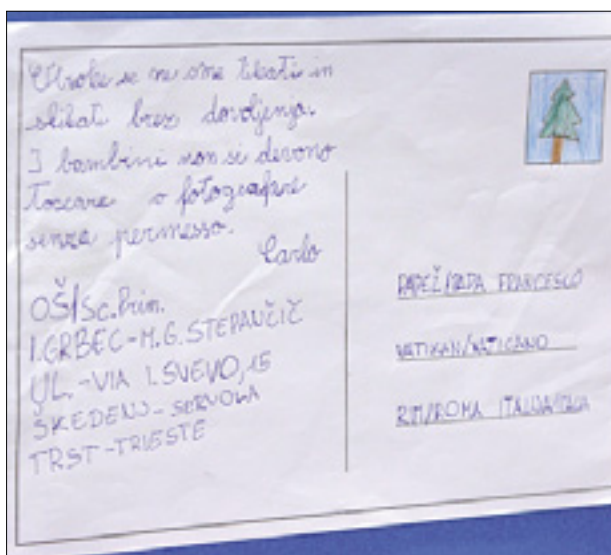 Otroke se ne sme tikati in
slikat brez dovoljenja.
I bambini non si devono
toccare o fotografare
senza permesso.
Carlo
OŠ/Sc. Prim.
I. GRBEC-M.G. STEPANČIČ
UL.-VIA I. SVEVO, 15
ŠKEDENJ-SERVOLA
TRST-TRIESTE
PAPEŽ/PAPA FRANCESCO
VATIKAN/VATICANO
RIM/ROMA ITALIJA/ITALIA